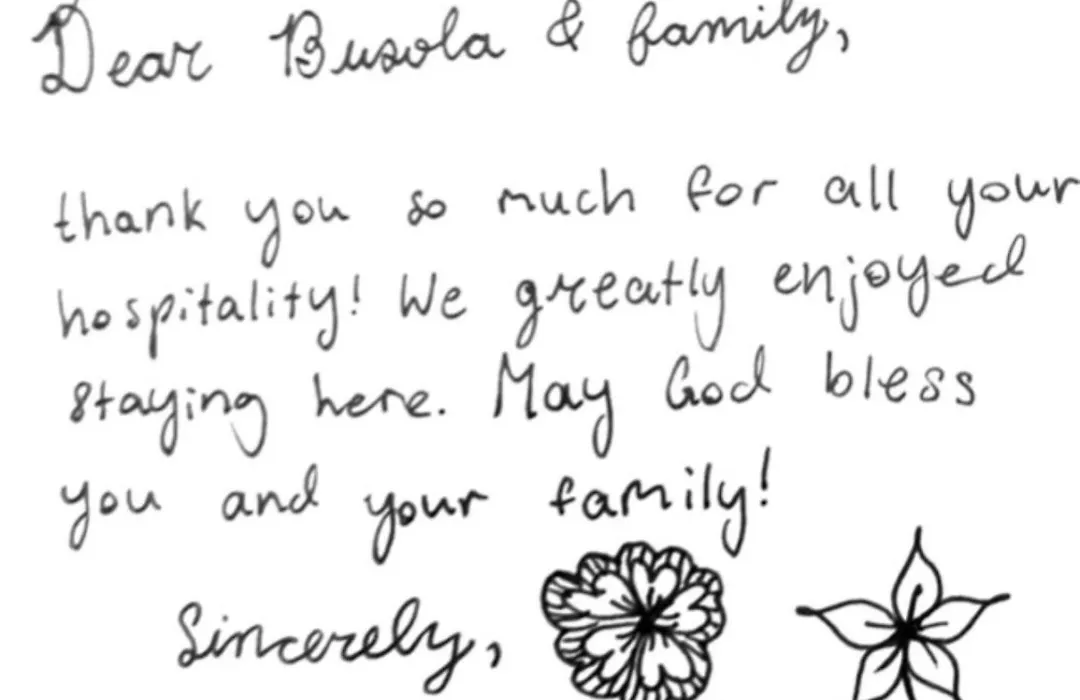 Dear Busola & family,
thank you so much for all your
hospitality! We greatly enjoyed
staying here. May God bless
you and your family!
Sincerely,